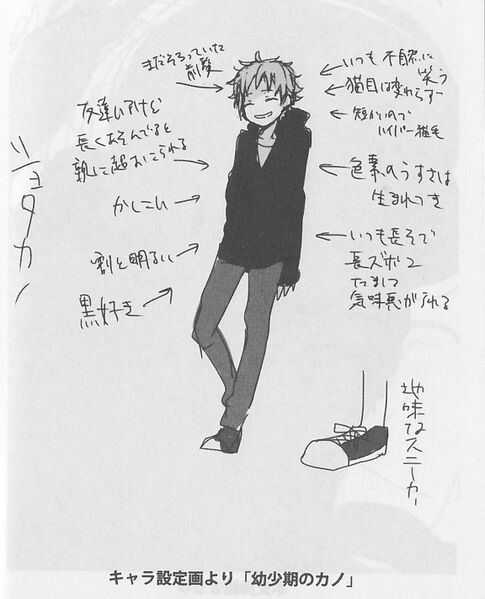 まだそろっていた
前髪
いつも不敵に
笑う
猫目は変わらず
短かいので
ハイパー猫毛
友達いるけど
長くあそんでると
親に超おこられる
色素のうすさは
生まれつき
かしこい
ショタカノ
いつも長そで
長ズボン
気味悪がられる
割と明るい
黒好き
地味なスニーカー
キャラ設定画より「幼少期のカノ」